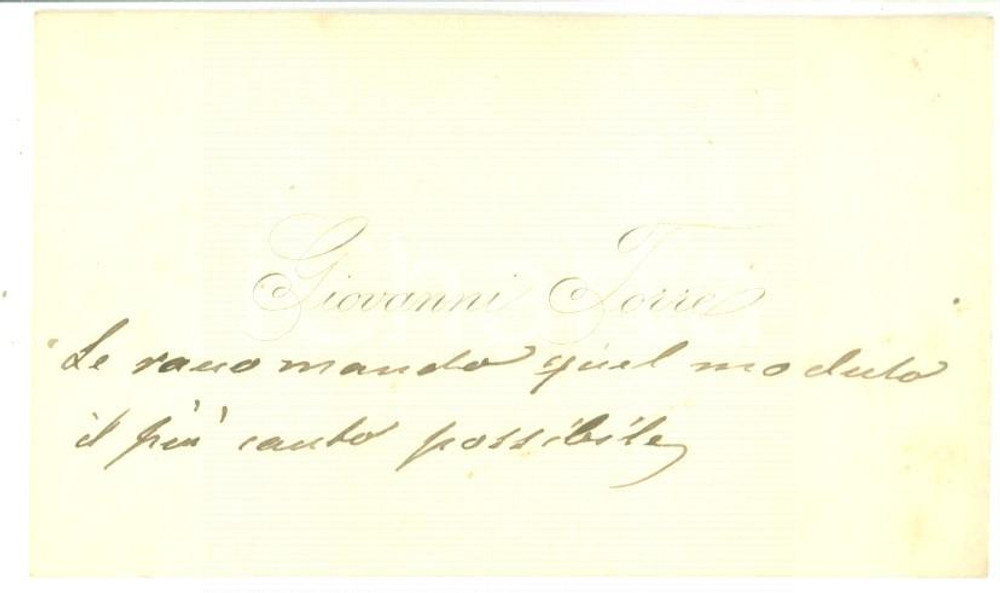 Giovanni Torre
Le raccomando quel moduto
il più cauto possibile